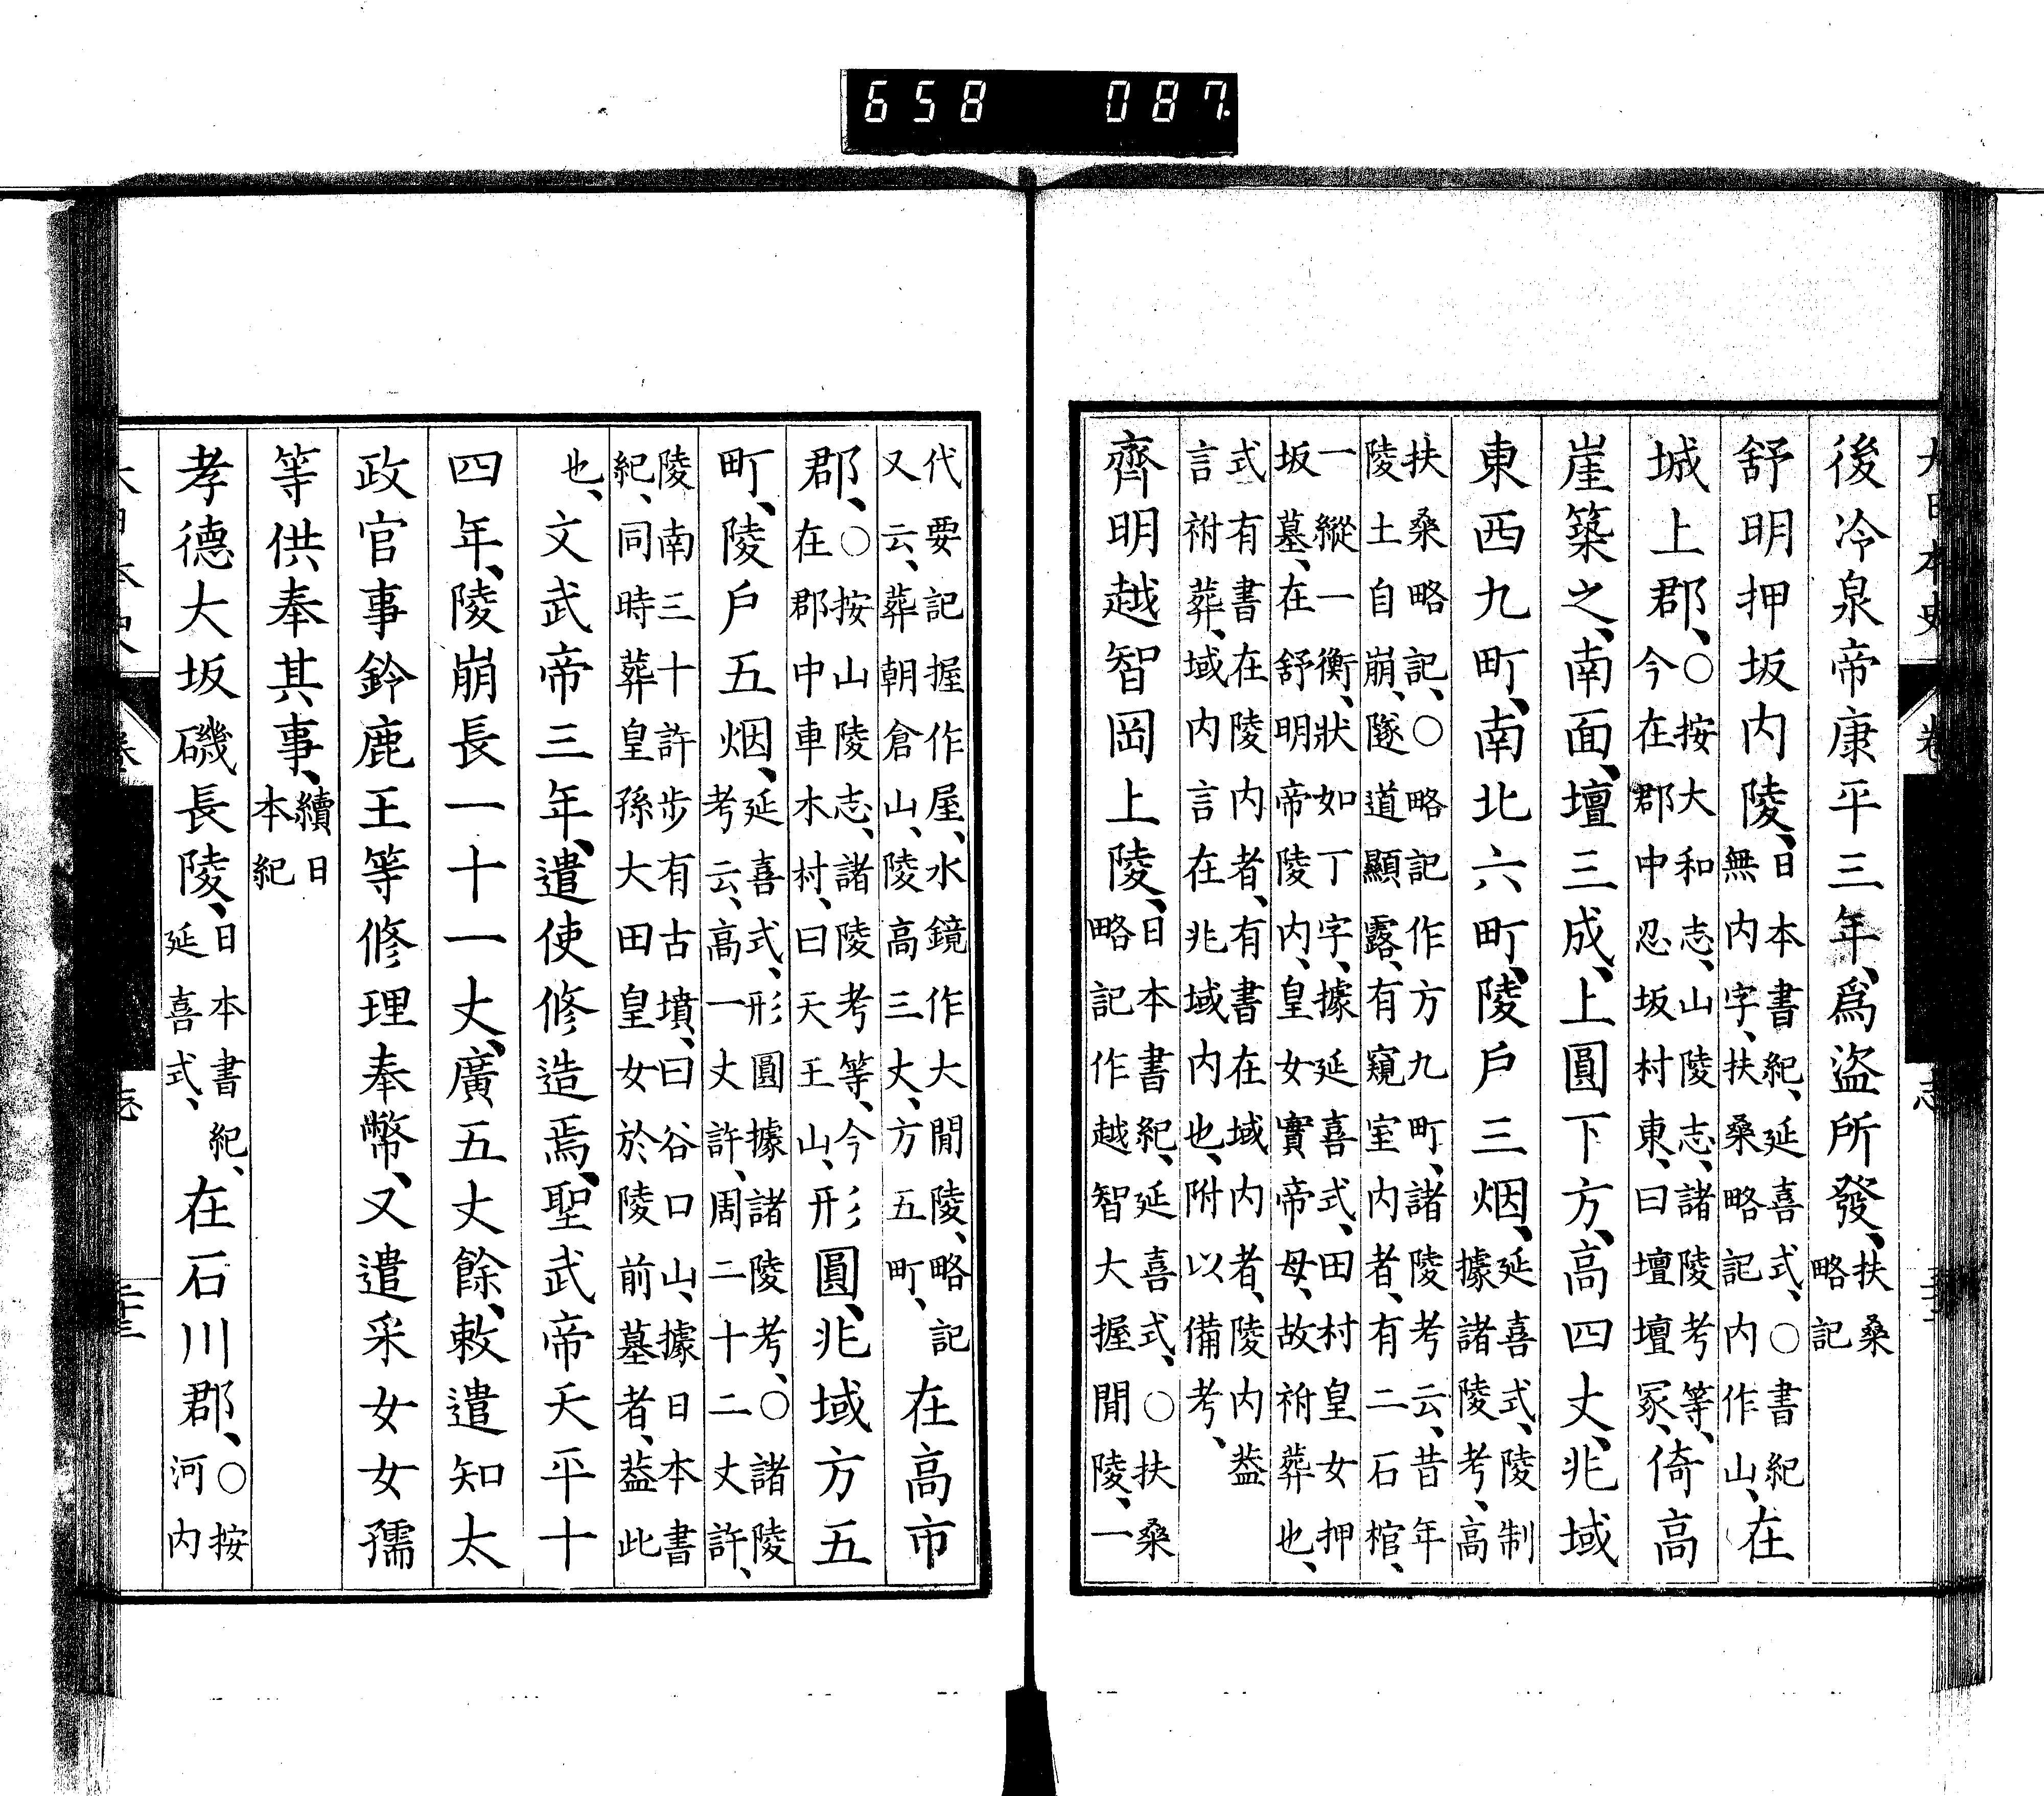 658 087
後冷泉帝康平三年、爲盜所發、扶桑略記
舒明押坂内陵、日本書紀、延喜式、○書紀無内字、扶桑略記内作山、在
城上郡、○按大和志、山陵志、諸陵考等、今在郡中忍坂村東、曰壇壇冢、倚高
崖築之、南面、壇三成、上圓下方、高四丈、兆域
東西九町、南北六町、陵戶三烟、延喜式、陵制據諸陵考、高
扶桑略記、○略記作方九町、諸陵考云、昔年陵土自崩、隧道顯露、有窺室内者、有二石棺、
一縱一衡、狀如丁字、據延喜式、田村皇女押坂墓、在舒明帝陵内、皇女實帝母、故祔葬也、
式有書在陵内者、有書在域内者、陵内葢言祔葬、域内言在兆域内也、附以備考、
齊明越智岡上陵、日本書紀、延喜式、○扶桑略記作越智大握間陵、一
代要記握作屋、水鏡作大間陵、略記又云、葬朝倉山、陵高三丈、方五町、在高市
郡、○按山陵志、諸陵考等、今在郡中車木村、曰天王山、形圓、兆域方五
町、陵戶五烟、延喜式、形圓據諸陵考、○諸陵考云、高一丈許、周二十二丈許、
陵南三十許步有古墳、曰谷口山、據日本書紀、同時葬皇孫大田皇女於陵前墓者、葢此
也、文武帝三年、遣使修造焉、聖武帝天平十
四年、陵崩長一十一丈、廣五丈餘、敕遣知太
政官事鈴鹿王等修理奉幣、又遣采女女孺
等供奉其事、續日本紀
孝德大坂磯長陵、日本書紀、延喜式、在石川郡、○按河内